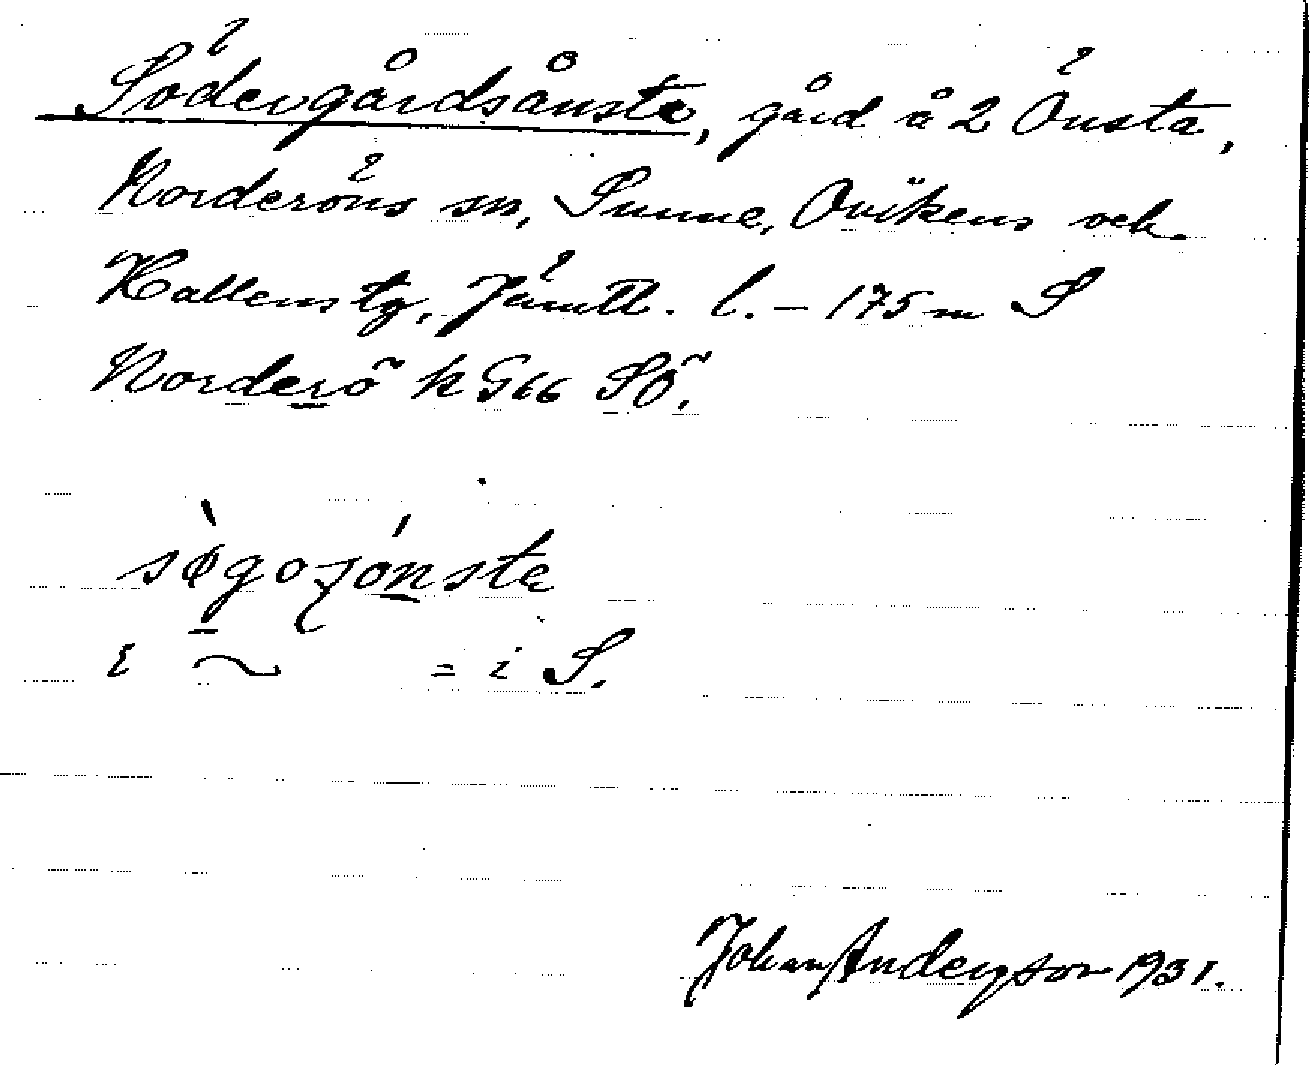 Södergårdsånsta, gård å 2 Önsta,
Norderöns sn, Sunne, Ovikens och
Hallens tg, Jämtl. l. – 175 m S
Norderö k G66 SÖ.
i ~ = i S.
Johan Anderson 1931.